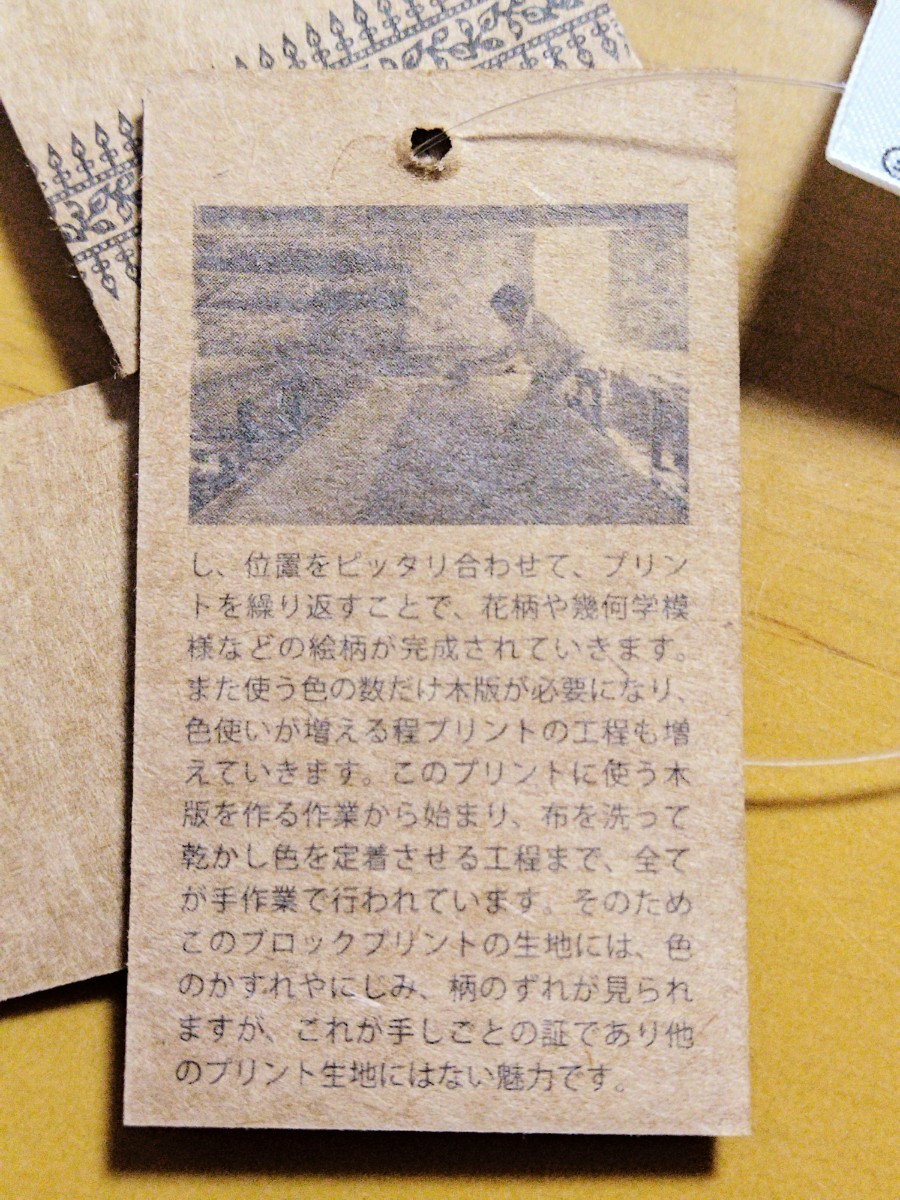 し、位置をピッタリ合わせて、プリン
トを繰り返すことで、花柄や幾何学模
様などの絵柄が完成されていきます。
また使う色の数だけ木版が必要になり、
色使いが増える程プリントの工程も増
えていきます。このプリントに使う木
版を作る作業から始まり、布を洗って
乾かし色を定着させる工程まで、全て
が手作業で行われています。そのため
このブロックプリントの生地には、色
のかすれやにじみ、柄のずれが見られ
ますが、これが手しごとの証であり他
のプリント生地にはない魅力です。